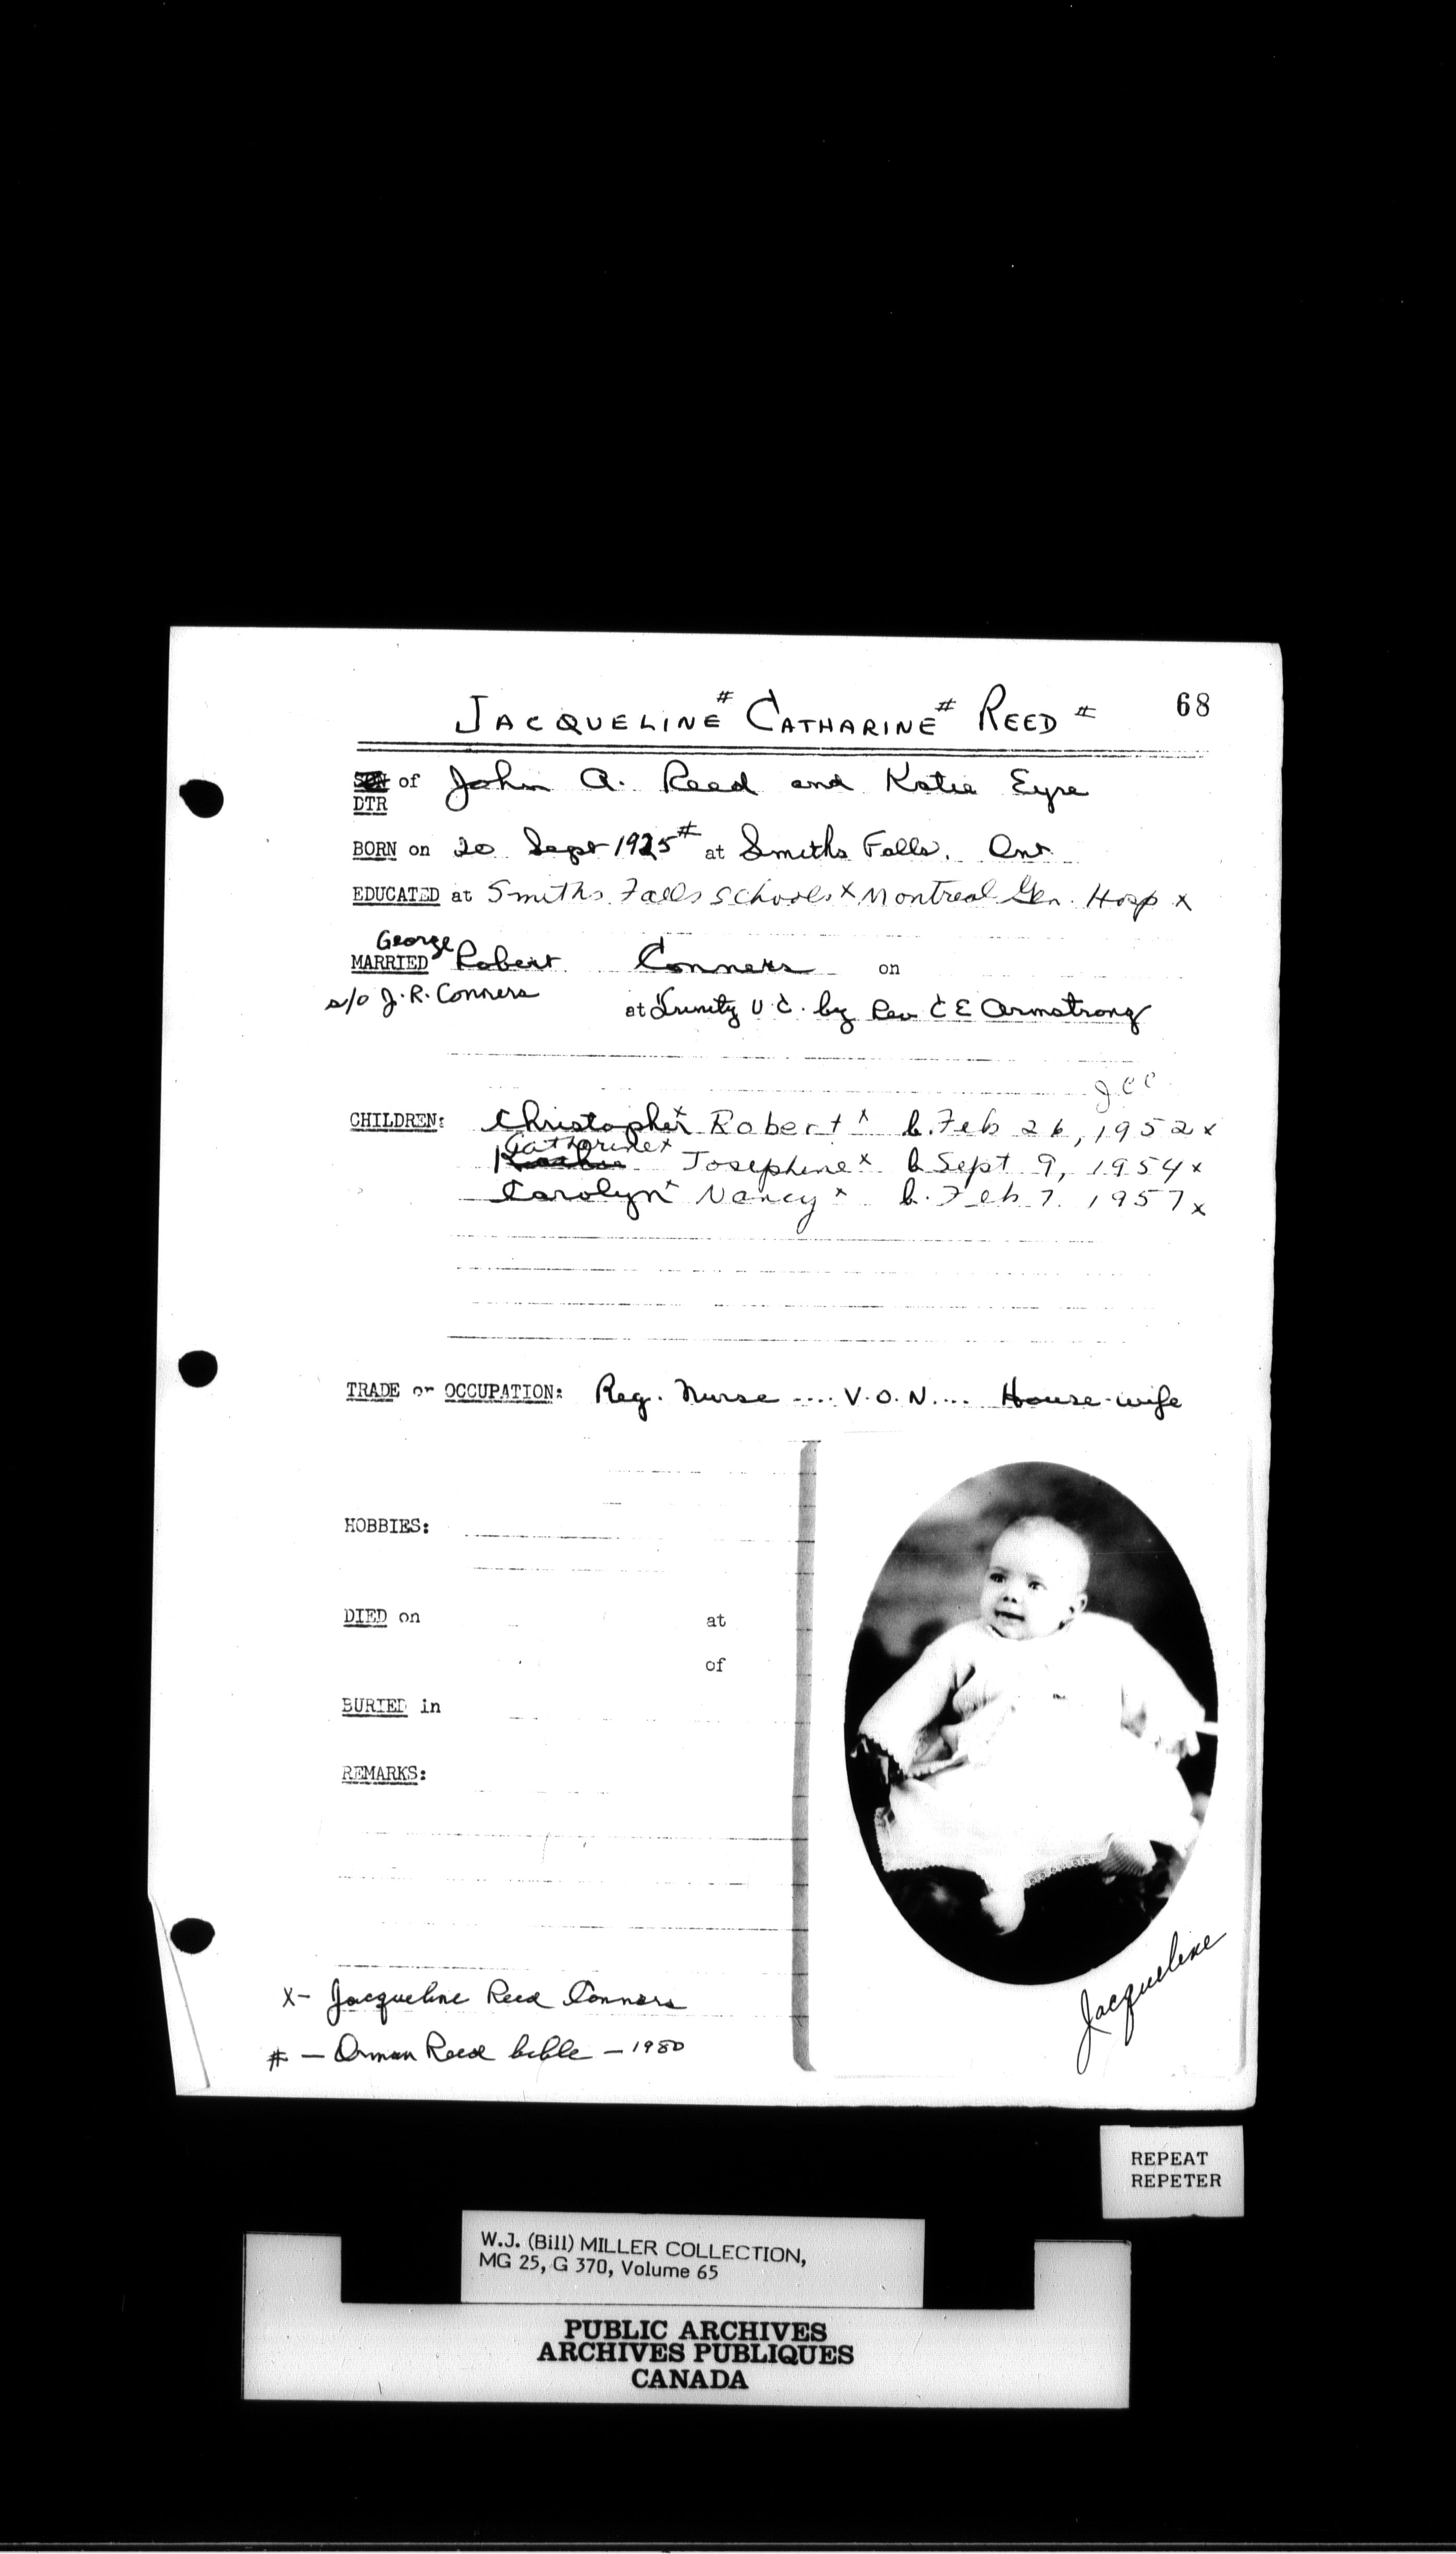 JACQUELINE # CATHARINE # REED #
68
of John A. Reed and Katie Eyre
DTR
BORN on 20 Sept 1925 # at Smiths Falls, Ont.
EDUCATED at Smiths Falls Schools x Montreal Gen. Hosp x
George
MARRIED Robert Conners on
s/o J.R. Conners at Trinity U.C. by Rev C E Armstrong
JCC
CHILDREN: Christopher x Robert x b. Feb 26, 1952 x
Catherine x
Josephine x b Sept 9, 1954 x
Carolyn x Nancy x b. Feb 7. 1957 x
TRADE or OCCUPATION: Reg. Nurse .... V.O.N.... House-wife
HOBBIES:
DIED on at
of
BURIED in
REMARKS:
Jacqueline
x- Jacqueline Reed Conners
# - Orman Reed bible - 1980
REPEAT
REPETER
W.J. (Bill) MILLER COLLECTION,
MG 25, G 370, Volume 65
PUBLIC ARCHIVES
ARCHIVES PUBLIQUES
CANADA